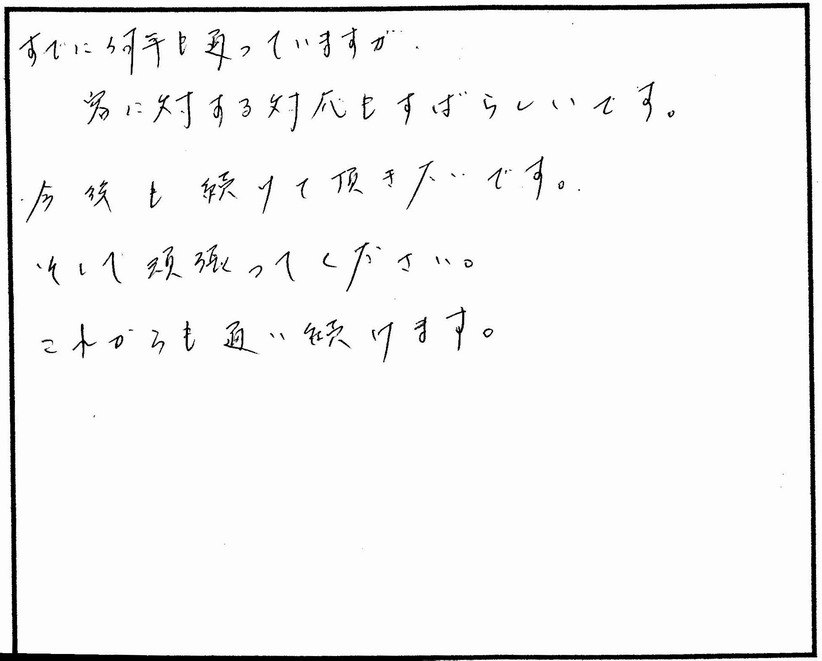 すでに何年も通っていますが、
客に対する対応もすばらしいです。
今後も続けて頂きたいです。
そして頑張ってください。
これからも通い続けます。